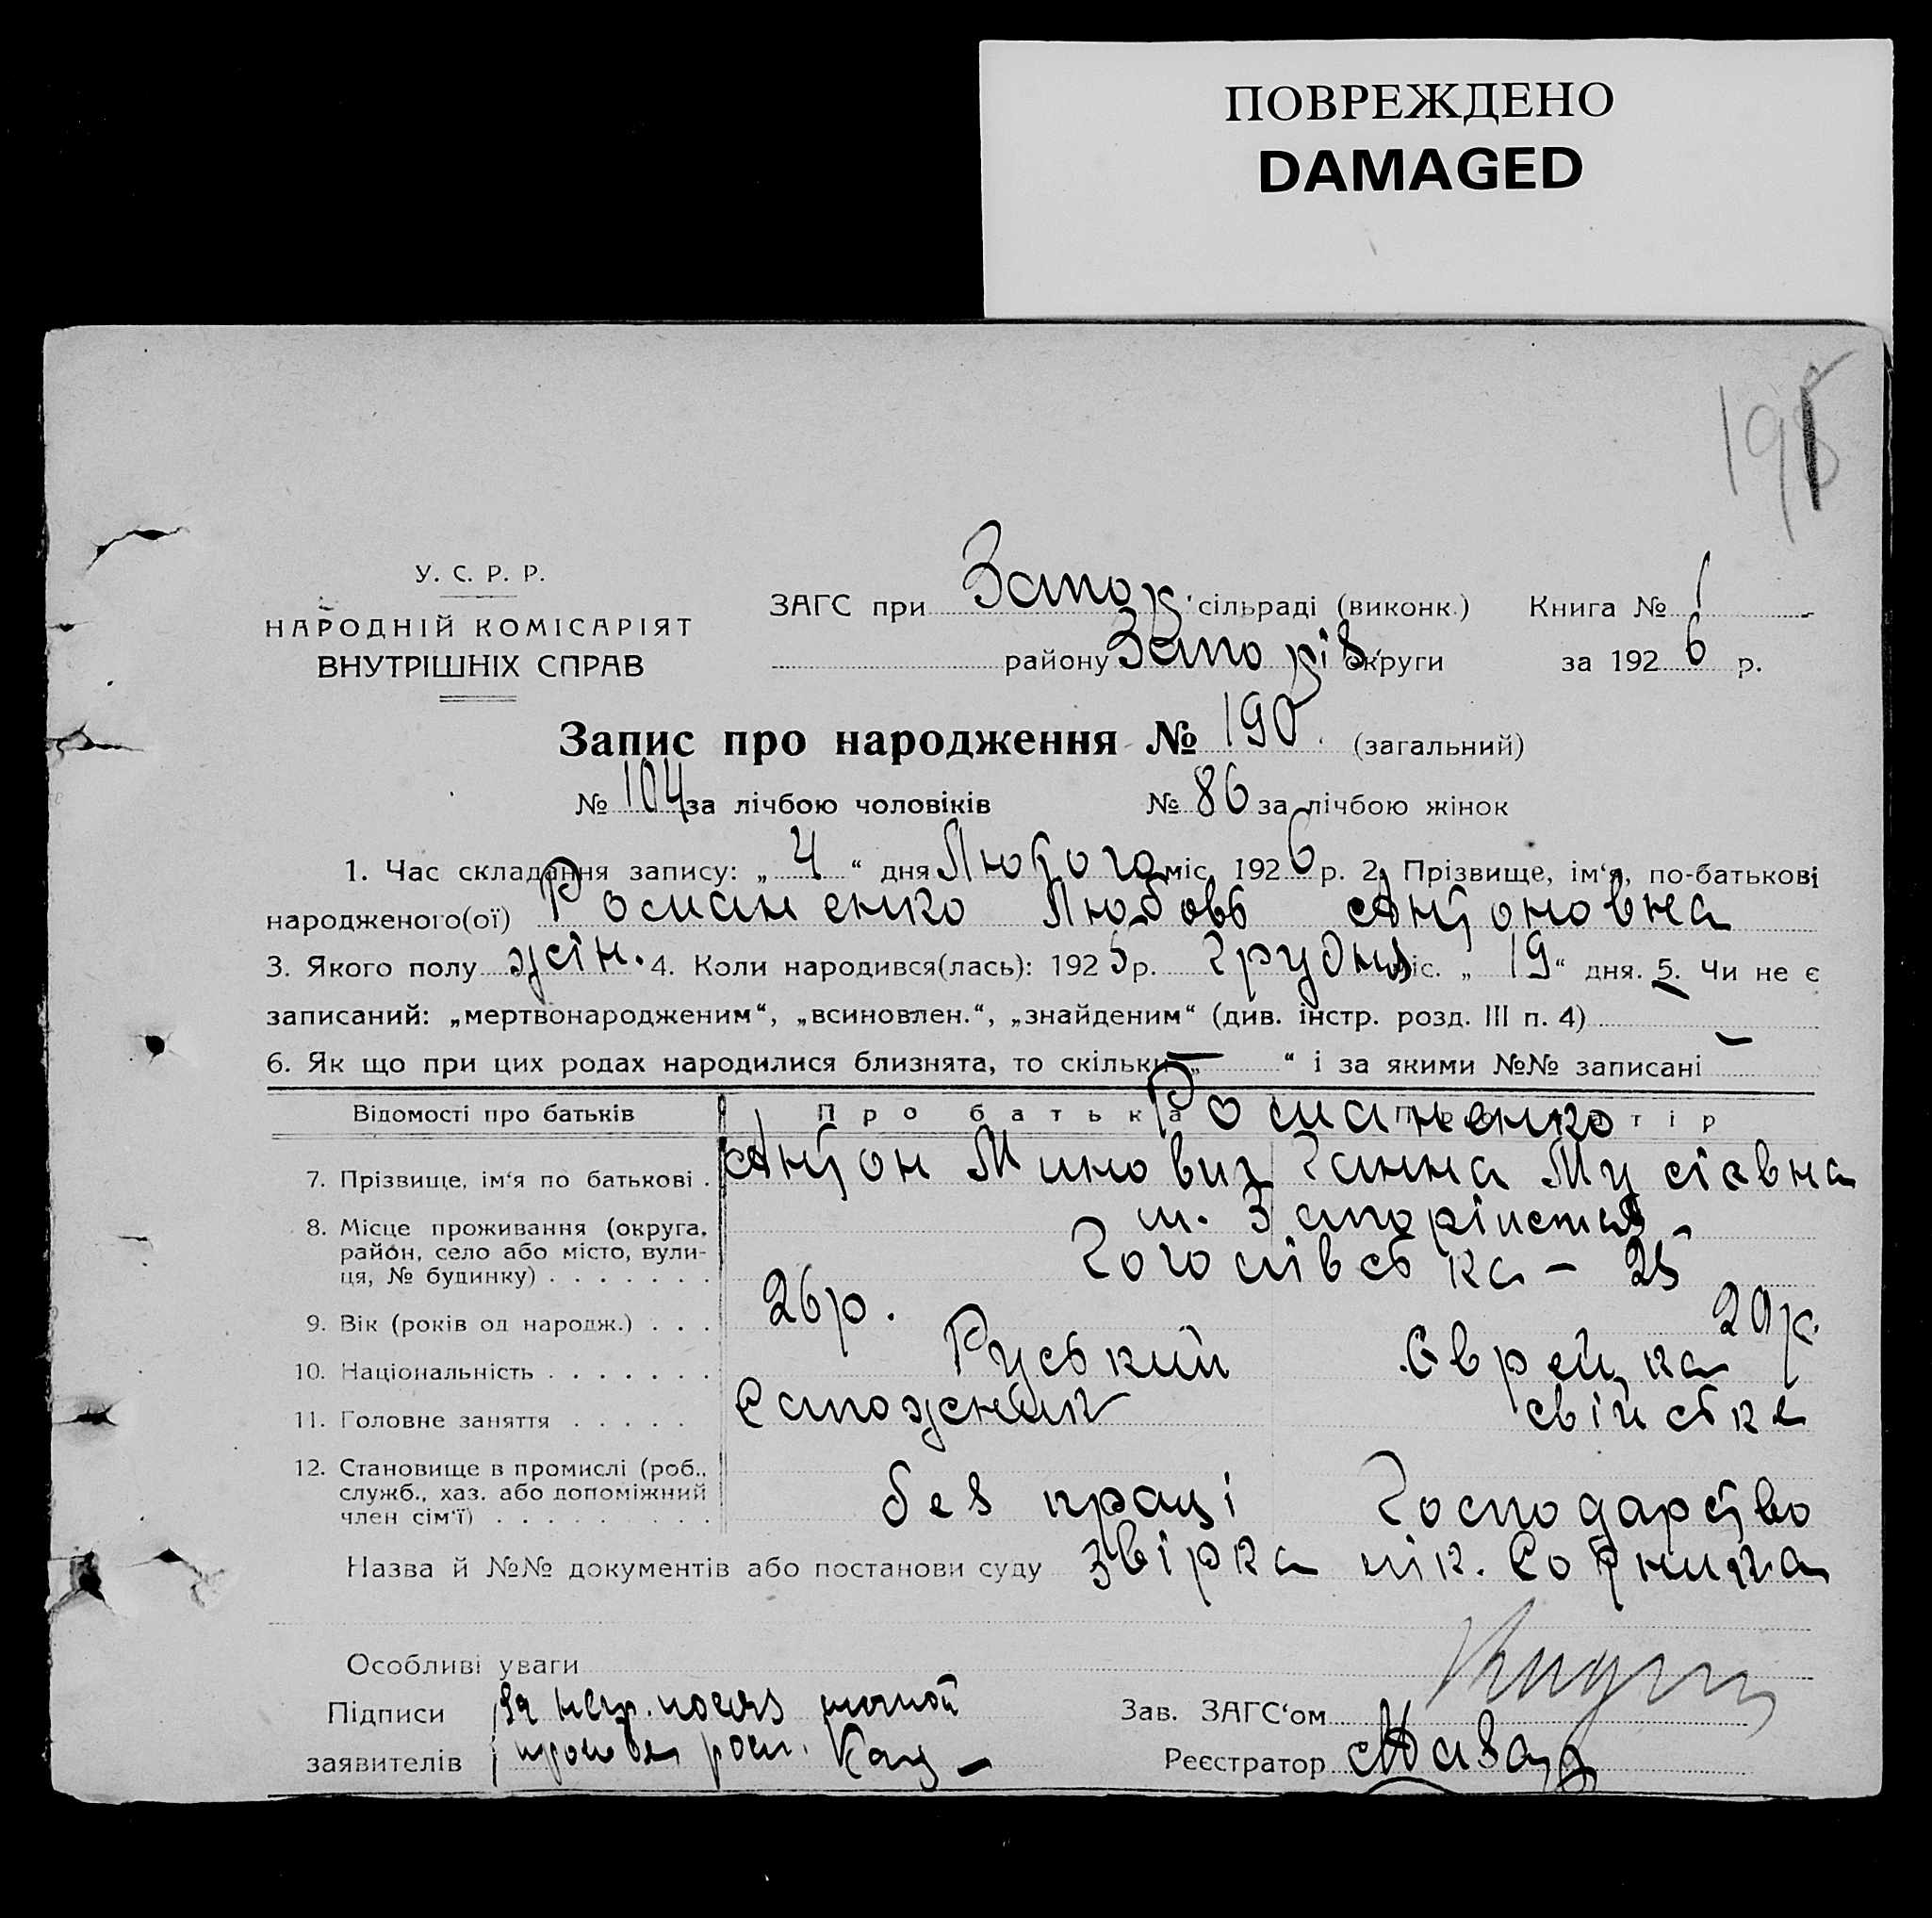 ПОВРЕЖДЕНО
DAMAGED
У. С. Р. Р.
НАРОДНІЙ КОМІСАРІЯТ
ВНУТРІШНІХ СПРАВ
ЗАГС при Запор. сільраді (виконк.) Книга № 1
району Запоріз. округи за 1926 р.
Запис про народження № 190. (загальний)
№ 104 за лічбою чоловіків № 86 за лічбою жінок
1. Час складання запису: „ 4 “ дня Лютого міс. 1926 р. 2. Прізвище, ім‘я, по-батькові
народженого(ої) Романенко Любовь Антоновна
3. Якого полу жін. 4. Коли народився(лась): 1925 р. Грудня міс. „ 19 “ дня. 5. Чи не є
записаний: „мертвонародженим“, „всиновлен.“, „знайденим“ (див. інстр. розд. III п. 4) —
6. Як що при цих родах народилися близнята, то скільки „ — “ і за якими №№ записані
Відомості про батьків Про батька Про матір
Романенко
7. Прізвище, ім‘я по батькові . Антон Минович Ганна Мусіївна
8. Місце проживання (округа, м. Запоріжжя
район, село або місто, вули- Гоголівська – 25
ця, № будинку) . . . . . . .
9. Вік (років од народж.) . . . 26 р. 20 р.
10. Національність . . . . . . . Руський Єврейка
11. Головне заняття . . . . . Сапожник свійське
12. Становище в промислі (роб.,
служб., хаз. або допоміжний без праці Господарство
член сім‘ї) . . . . . . . . .
Назва й №№ документів або постанови суду звірка лік.
Особливі уваги
Підписи
заявителів
Зав. ЗАГС‘ом
Реєстратор